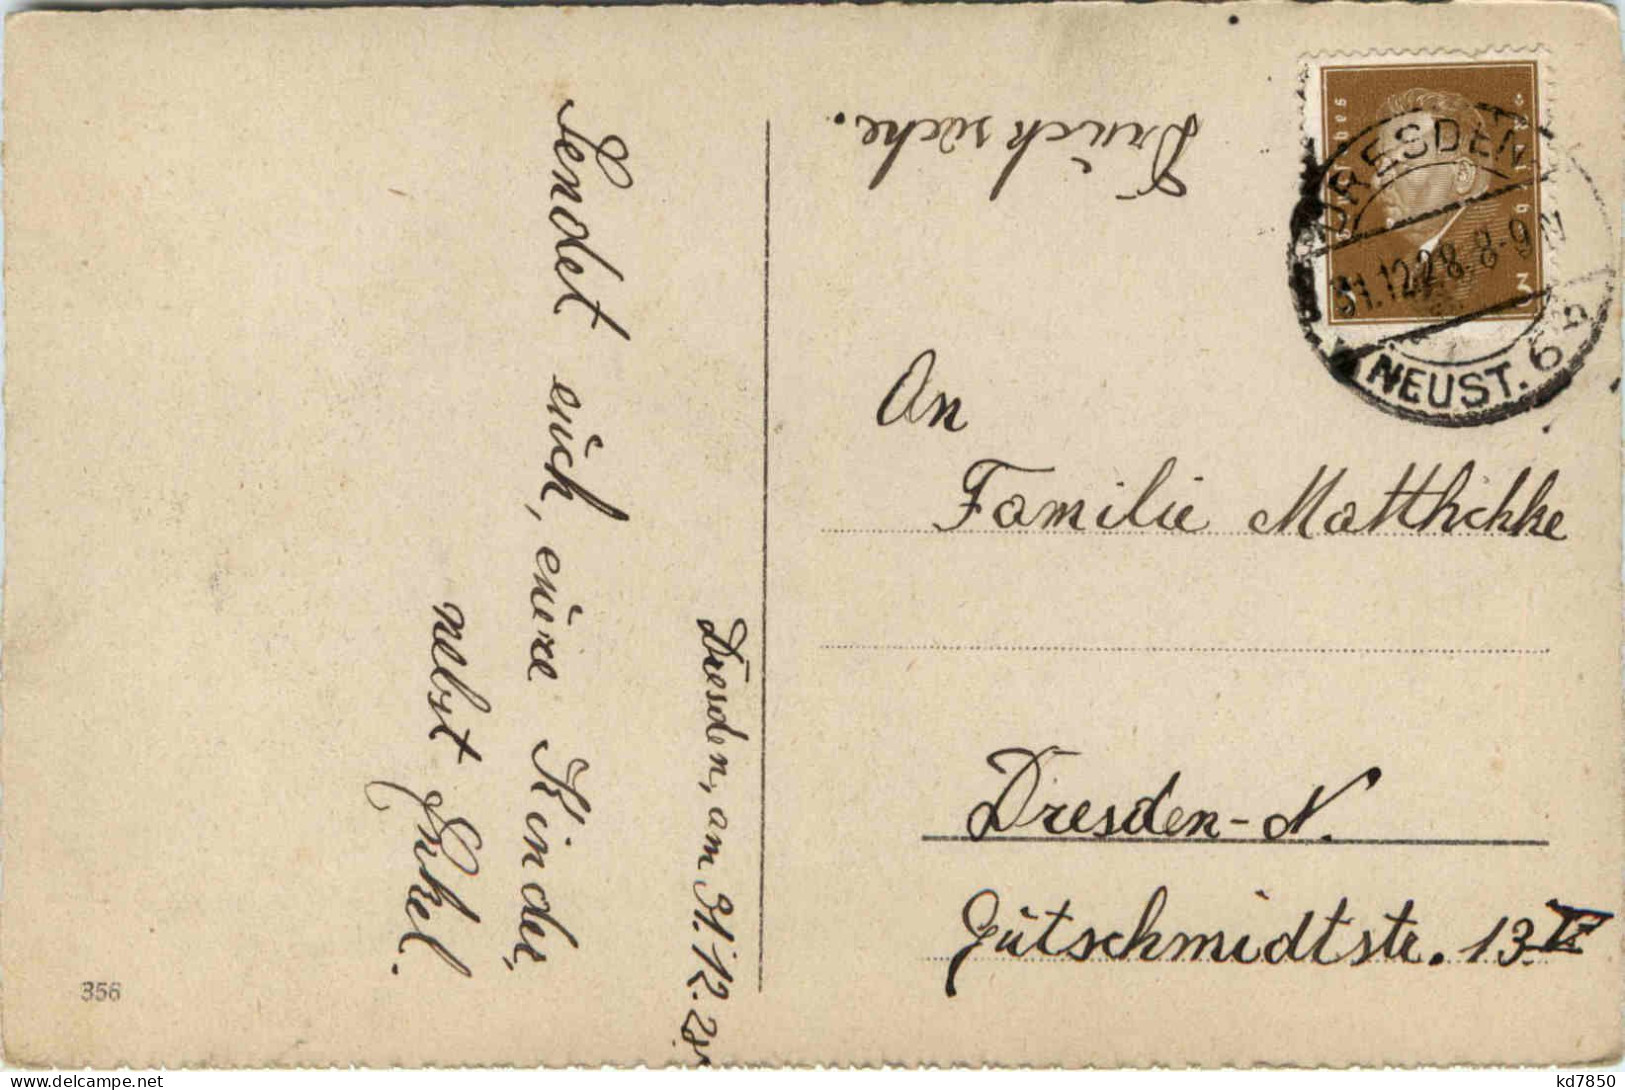 Drucksache.
Deutsches Reich
3 3
DRESDEN
31.12.28. 8-9 N
NEUST. 6
An
Familie Matthichke
Dresden-N.
Gutschmidtstr. 13
Dresden, am 31.12.28
Sendet euch, eure Kinder,
nebst Enkel.
356
kd7850